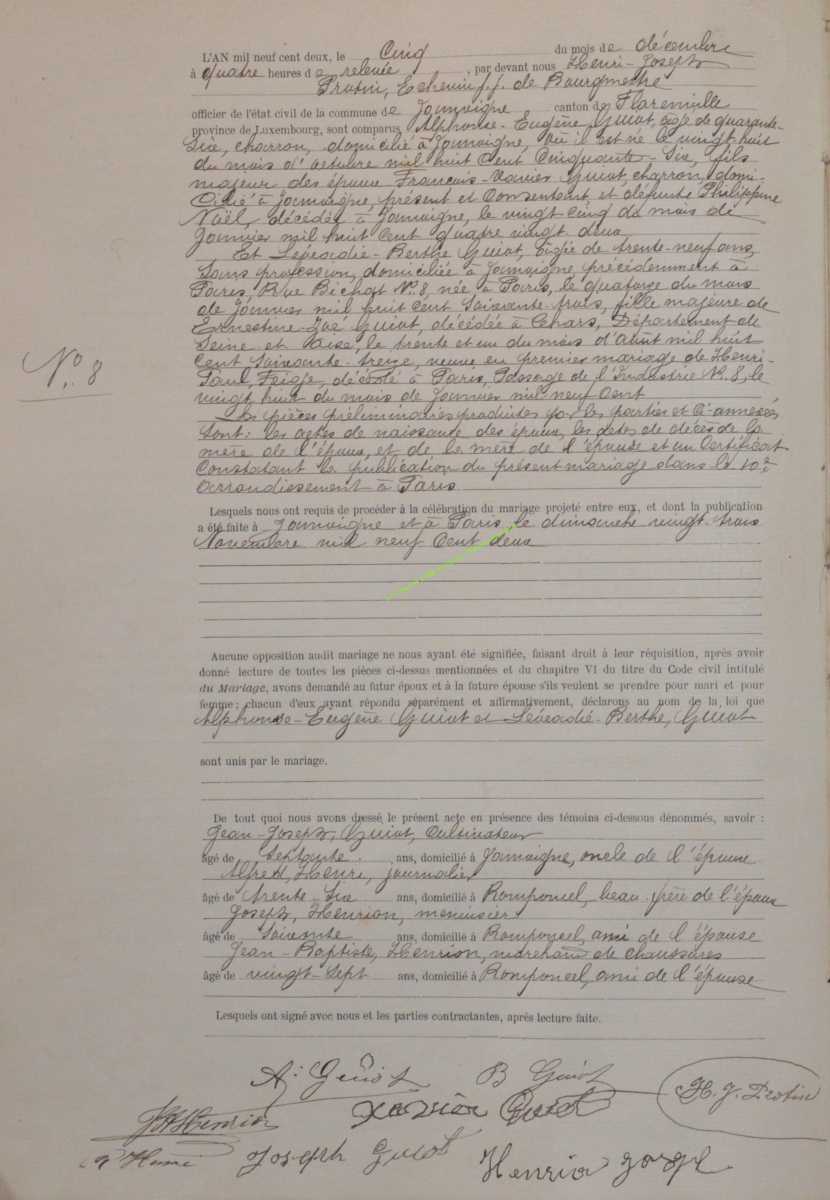 L'AN mil neuf cent deux, le Cinq du mois de décembre
à quatre heures de relevée, par devant nous Henri-Joseph
Protin, Echevin f.f. de Bourgmestre
officier de l'état civil de la commune de Jamoigne canton de Florenville
province de Luxembourg, sont comparus Alphonse-Eugène, Guiot, âgé de quarante-
Six, charron, domicilié à Jamoigne, où il Est né le vingt huit
du mois d'octobre mil huit Cent Cinquante-Six, fils
majeur des époux François-Xavier Guiot, charron, domi-
Cilié à Jamoigne, présent et Consentant, et défunte Philippine
Noël, décédée à Jamoigne, le vingt cinq du mois de
Janvier mil huit Cent quatre vingt deux
Et Léocadie-Berthe Guiot, âgée de trente-neuf ans,
Sans profession, domiciliée à Jamoigne, précédemment à
Paris, Rue Bichat No. 8, née à Paris, le quatorze du mois
de Janvier mil huit cent Soixante-trois, fille majeure de
Ernestine-Zoé Guiot, décédée à Chars, Département de
Seine et Oise, le trente et un du mois d'août mil huit
Cent Soixante-treize, veuve en premier mariage de Henri-
Paul, décédé à Paris, Passage de l'Industrie No. 8, le
vingt huit du mois de Janvier mil neuf Cent
Les pièces préliminaires produites par les parties et Ci-annexées
Sont: les actes de naissance des époux, les actes de décès de la
mère de l'époux, et de la mère de l'épouse et un Certificat
Constatant la publication du présent mariage dans le 10e
Arrondissement à Paris
No. 8
Lesquels nous ont requis de procéder à la célébration du mariage projeté entre eux, et dont la publication
a été faite à Jamoigne et à Paris le dimanche vingt-trois
Novembre mil neuf Cent deux
Aucune opposition audit mariage ne nous ayant été signifiée, faisant droit à leur réquisition, après avoir
donné lecture de toutes les pièces ci-dessus mentionnées et du chapitre VI du titre du Code civil intitulé
du Mariage, avons demandé au futur époux et à la future épouse s'ils veulent se prendre pour mari et pour
femme; chacun d'eux ayant répondu séparément et affirmativement, déclarons au nom de la loi que
Alphonse-Eugène Guiot et Léocadie-Berthe, Guiot
sont unis par le mariage.
De tout quoi nous avons dressé le présent acte en présence des témoins ci-dessous dénommés, savoir :
Jean-Joseph, Guiot, Cultivateur
âgé de Septante ans, domicilié à Jamoigne, oncle de l'épouse
Alfred, Henri, journalier
âgé de trente-Six ans, domicilié à Romponcel, beau-frère de l'époux
Joseph, Henrion, menuisier
âgé de Soixante ans, domicilié à Romponcel, ami de l'épouse
Jean-Baptiste, Henrion, marchand de chaussures
âgé de vingt-Sept ans, domicilié à Romponcel, ami de l'épouse
Lesquels ont signé avec nous et les parties contractantes, après lecture faite.
A. Guiot B Guiot H. J. Protin
JB Henrion Xavier Guiot
A Henri Joseph Guiot Henrion Joseph